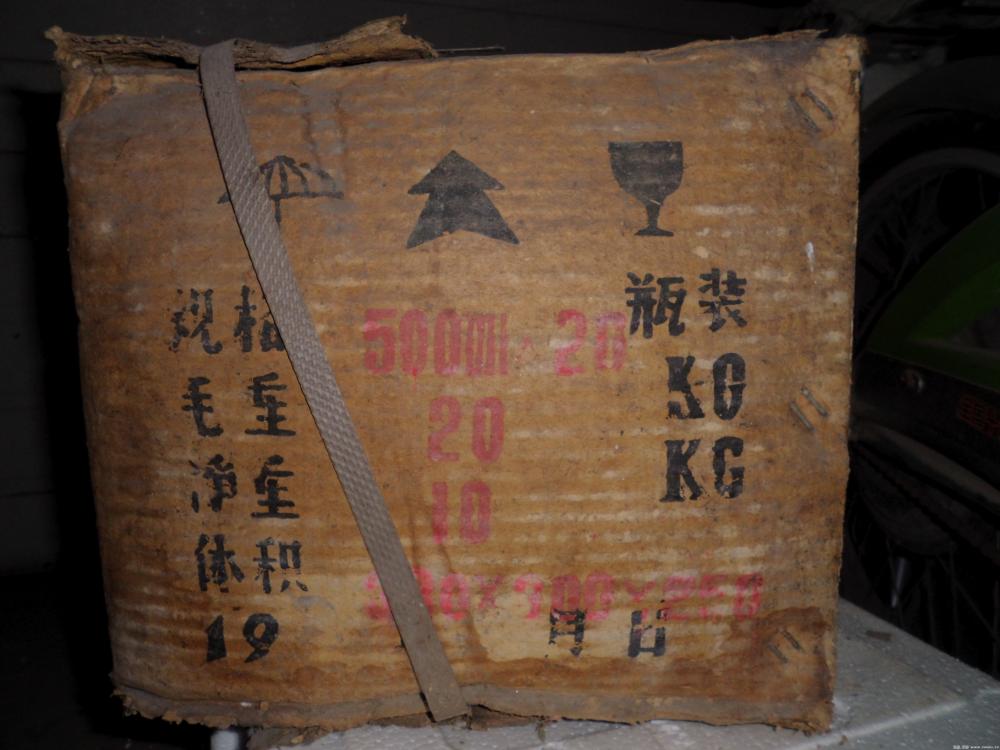 规格 500ml×20瓶装
毛重 20 KG
净重 10 KG
体积
19 月 日